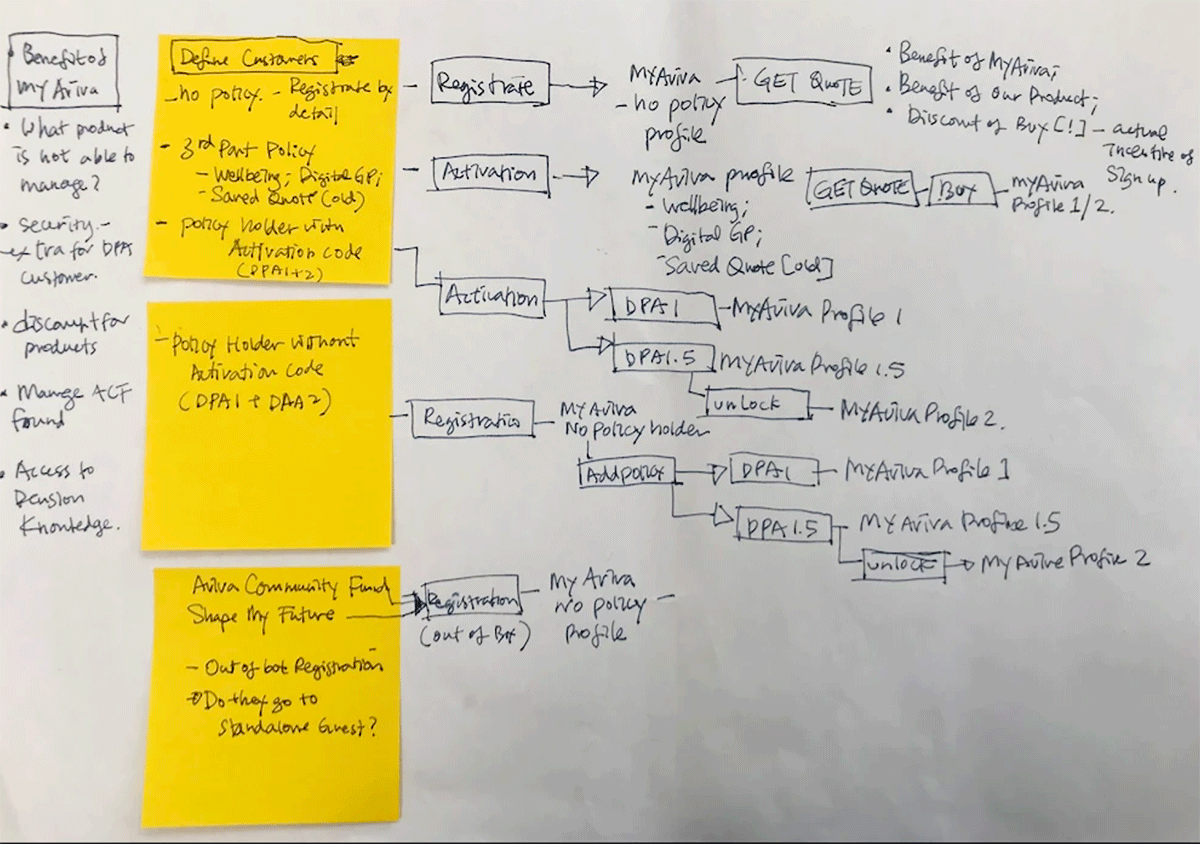 Benefit of
my Aviva
• What product
is not able to
manage?
• security –
extra for DPA
customer.
• discount for
products
• Manage ACF
found
• Access to
Pension
Knowledge.
Define Customers
– no policy. – Registrate by
detail
– 3rd Part Policy
– Wellbeing; Digital GP;
– Saved Quote (old)
– policy holder with
Activation code
(DPA1+2)
– Policy Holder without
Activation code
(DPA1 + DAA2)
Aviva Community Fund
Shape My Future
– Out of bot Registration
Do they go to
Standalone Guest?
Registrate
MyAviva
– no policy
profile
GET QUOTE
• Benefit of MyAviva;
• Benefit of our Product;
• Discount of Buy [!] – actual
incentive of
Sign up.
Activation
MyAviva profile
– Wellbeing;
– Digital GP;
– Saved Quote [old]
GET QUOTE
Buy
– myAviva
Profile 1/2.
Activation
DPA1
– MyAviva Profile 1
DPA1.5
MyAviva Profile 1.5
unlock
– MyAviva Profile 2.
Registration
My Aviva
No policy holder
Add policy
DPA1
– MyAviva Profile 1
DPA1.5
– MyAviva Profile 1.5
unlock
My Aviva Profile 2
Registration
(out of Box)
– My Aviva
No policy –
Profile